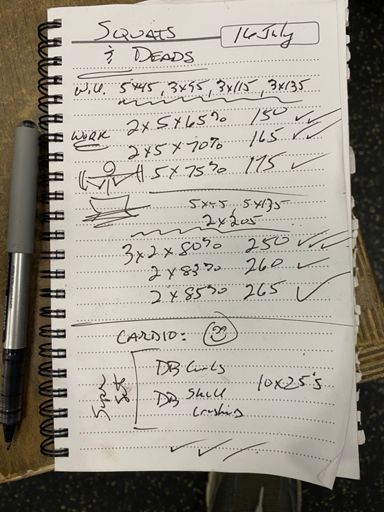 SQUATS
& DEADS
16 July
W.U. 5x45, 3x95, 3x115, 3x135
WORK 2x5x65% 150 ✓✓
2x5x70% 165 ✓✓
5x75% 175 ✓
5x135
2x205
3x2x80% 250 ✓✓✓
2x83% 260 ✓
2x85% 265 ✓
CARDIO:
Super Set
DB Curls
DB Skull Crushers
10x25's
✓ ✓ ✓